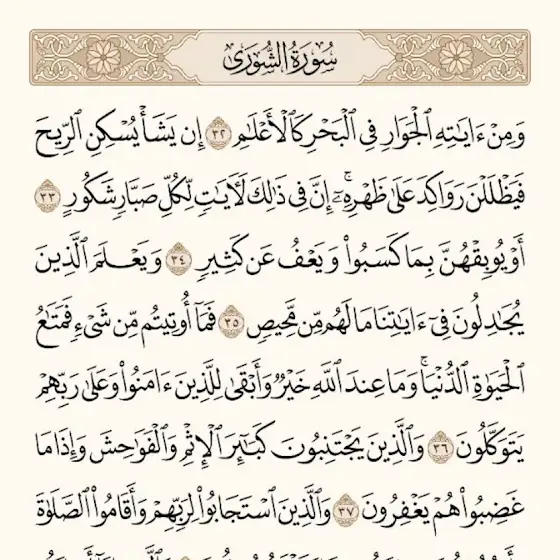 سُورَةُ الشُّورَىٰ
وَمِنْ ءَايَٰتِهِ ٱلْجَوَارِ فِي ٱلْبَحْرِ كَٱلْأَعْلَٰمِ ٣٢ إِن يَشَأْ يُسْكِنِ ٱلرِّيحَ
فَيَظْلَلْنَ رَوَاكِدَ عَلَىٰ ظَهْرِهِۦٓ ۚ إِنَّ فِي ذَٰلِكَ لَءَايَٰتٍ لِّكُلِّ صَبَّارٍ شَكُورٍ ٣٣
أَوْ يُوبِقْهُنَّ بِمَا كَسَبُوا۟ وَيَعْفُ عَن كَثِيرٍ ٣٤ وَيَعْلَمَ ٱلَّذِينَ
يُجَٰدِلُونَ فِيٓ ءَايَٰتِنَا مَا لَهُم مِّن مَّحِيصٍ ٣٥ فَمَآ أُوتِيتُم مِّن شَيْءٍ فَمَتَٰعُ
ٱلْحَيَوٰةِ ٱلدُّنْيَا ۖ وَمَا عِندَ ٱللَّهِ خَيْرٌ وَأَبْقَىٰ لِلَّذِينَ ءَامَنُوا۟ وَعَلَىٰ رَبِّهِمْ
يَتَوَكَّلُونَ ٣٦ وَٱلَّذِينَ يَجْتَنِبُونَ كَبَٰٓئِرَ ٱلْإِثْمِ وَٱلْفَوَٰحِشَ وَإِذَا مَا
غَضِبُوا۟ هُمْ يَغْفِرُونَ ٣٧ وَٱلَّذِينَ ٱسْتَجَابُوا۟ لِرَبِّهِمْ وَأَقَامُوا۟ ٱلصَّلَوٰةَ